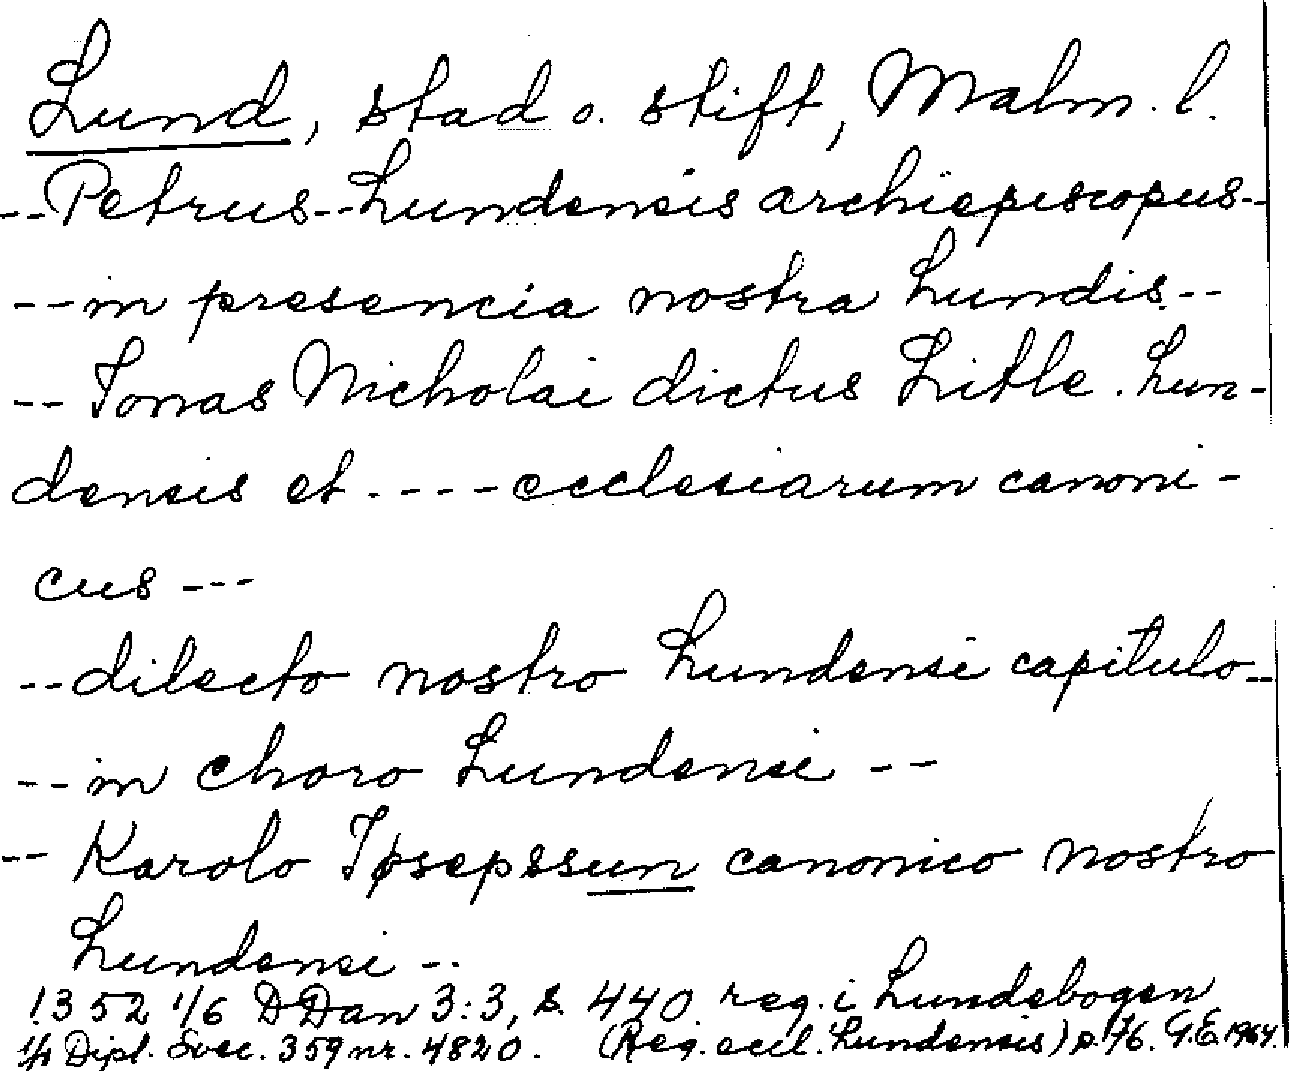 Lund, stad o. stift, Malm. l.
--Petrus--Lundensis archiepiscopus--
--in presencia nostra Lundis--
--Jonas Nicholai dictus Litle. Lun-
densis et ---- ecclesiarum canoni-
cus ---
--dilecto nostro Lundensi capitulo--
--in choro Lundensi --
-- Karolo Iøsepssun canonico nostro
Lundensi --
1352 1/6 DDan 3:3, s. 440 reg. i Lundebogen
Dipl. Svec. 359 nr. 4820. (Reg. eccl. Lundensis) s. 76. G.E. 1964.